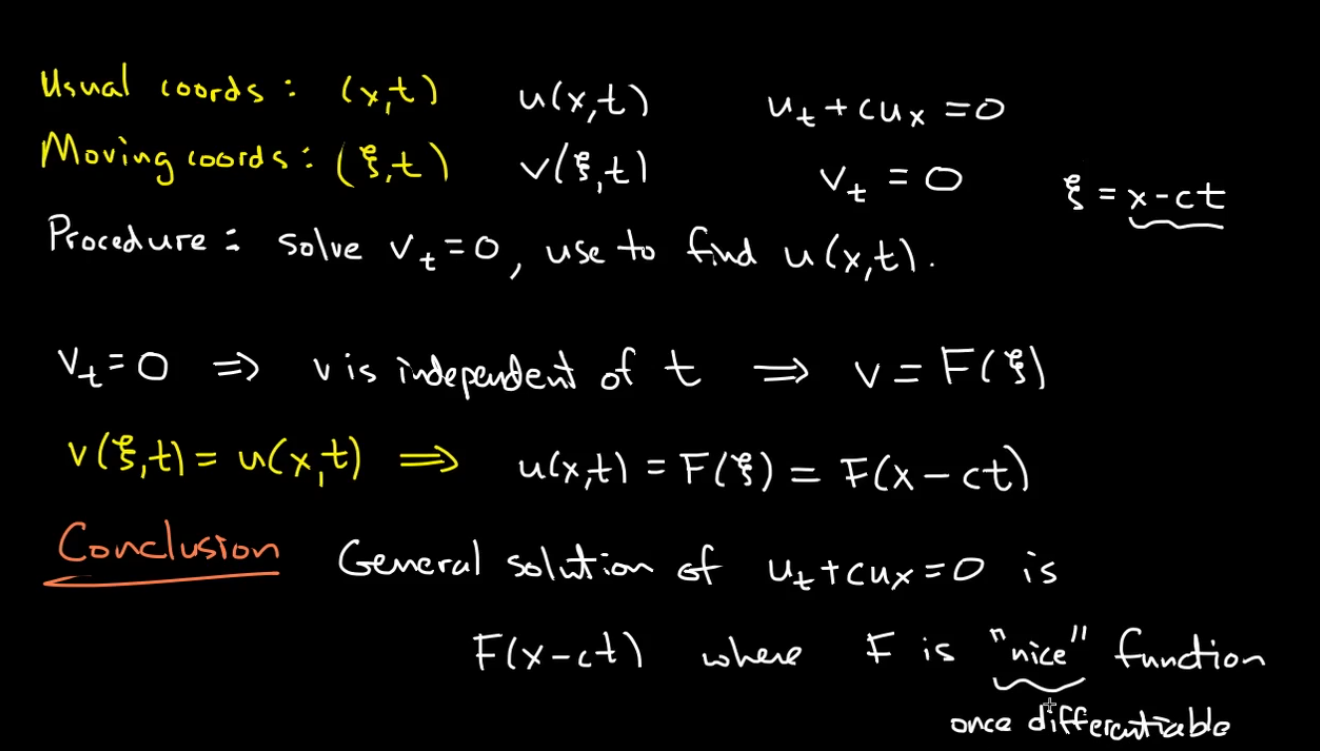 Usual coords : (x,t) u(x,t) u_t + cu_x = 0
Moving coords : (ξ,t) v(ξ,t) v_t = 0 ξ = x-ct
Procedure : solve v_t = 0, use to find u(x,t).
v_t = 0 ⇒ v is independent of t ⇒ v = F(ξ)
v(ξ,t) = u(x,t) ⇒ u(x,t) = F(ξ) = F(x-ct)
Conclusion General solution of u_t + cu_x = 0 is
F(x-ct) where F is "nice" function
once differentiable